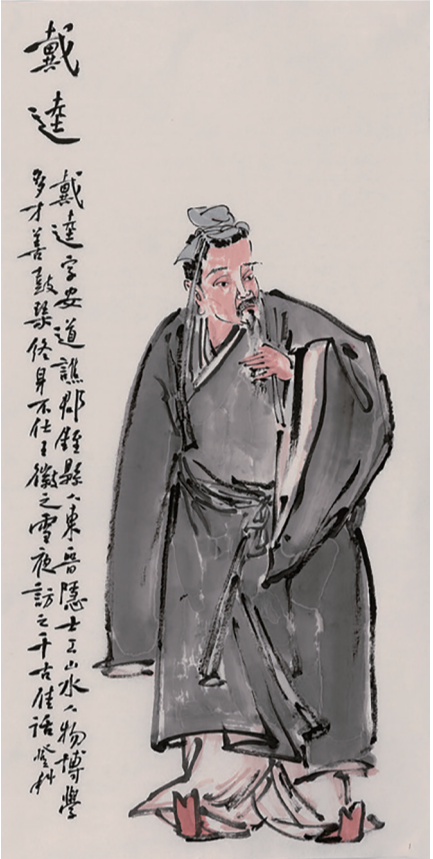 戴逵
戴逵字安道譙郡銍縣人東晉隱士工山水人物博學
多才善鼓琴終身不仕王徽之雪夜訪之千古佳話登科